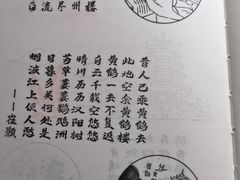 昔人已乘黄鹤去
此地空余黄鹤楼
黄鹤一去不复返
白云千载空悠悠
晴川历历汉阳树
芳草萋萋鹦鹉洲
日暮乡关何处是
烟波江上使人愁
——崔颢